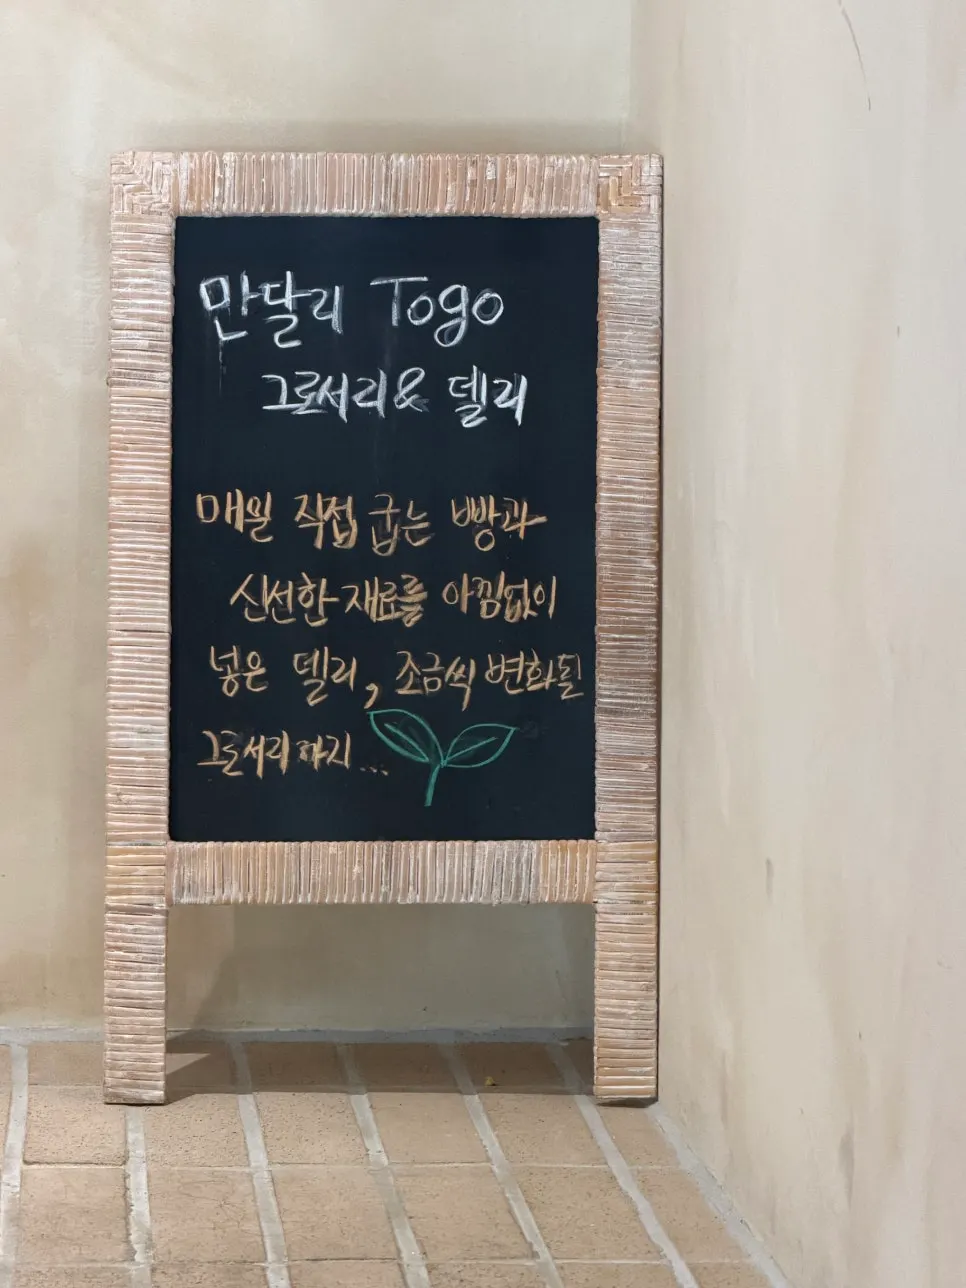 만달리 Togo
그로서리 & 델리
매일 직접 굽는 빵과
신선한 재료를 아낌없이
넣은 델리, 조금씩 변화될
그로서리까지...